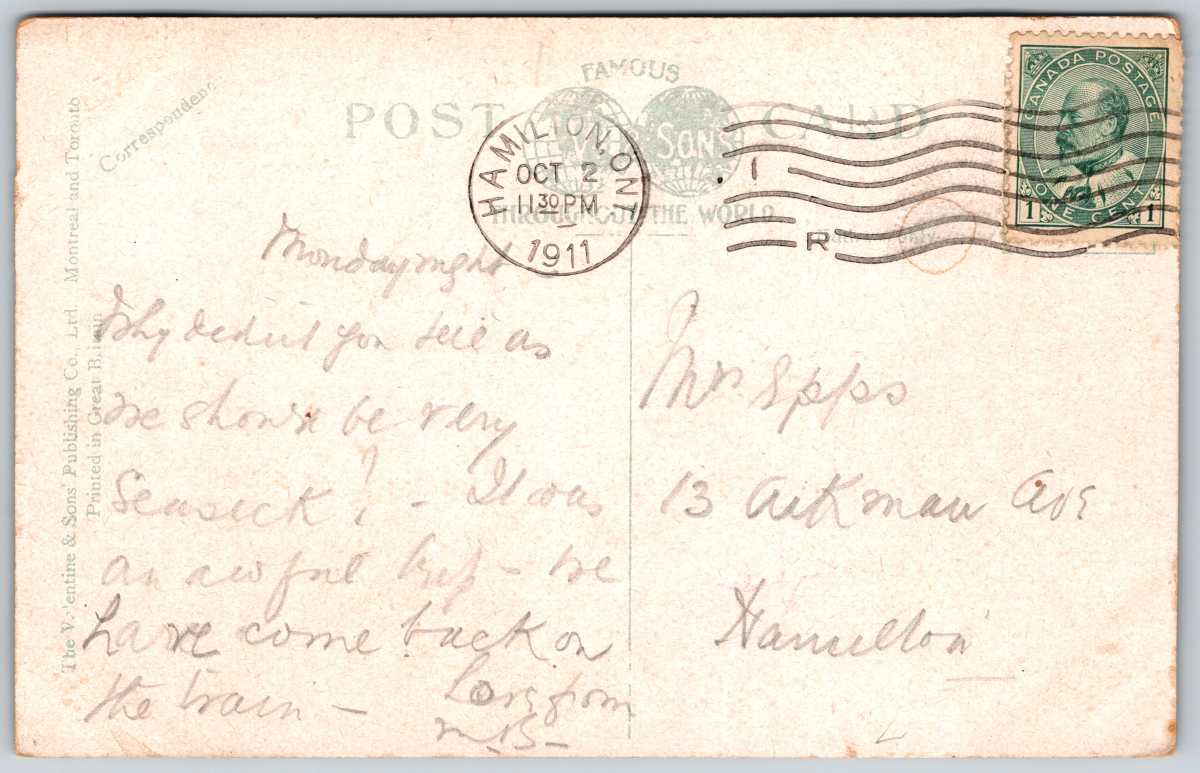 FAMOUS
POST CARD
V. & Sons
THROUGHOUT THE WORLD
Correspondence
The Valentine & Sons' Publishing Co., Ltd. Montreal and Toronto
Printed in Great Britain
HAMILTON, ONT
OCT 2
11 30 PM
1911
1
R
CANADA POSTAGE
1 ONE CENT 1
Monday night
Why didn't you tell us
we should be very
Seasick? - It was
an awful trip - we
have come back on
the train -
Love from
M.B.-
Mrs Epps
13 Aikman Ave
Hamilton